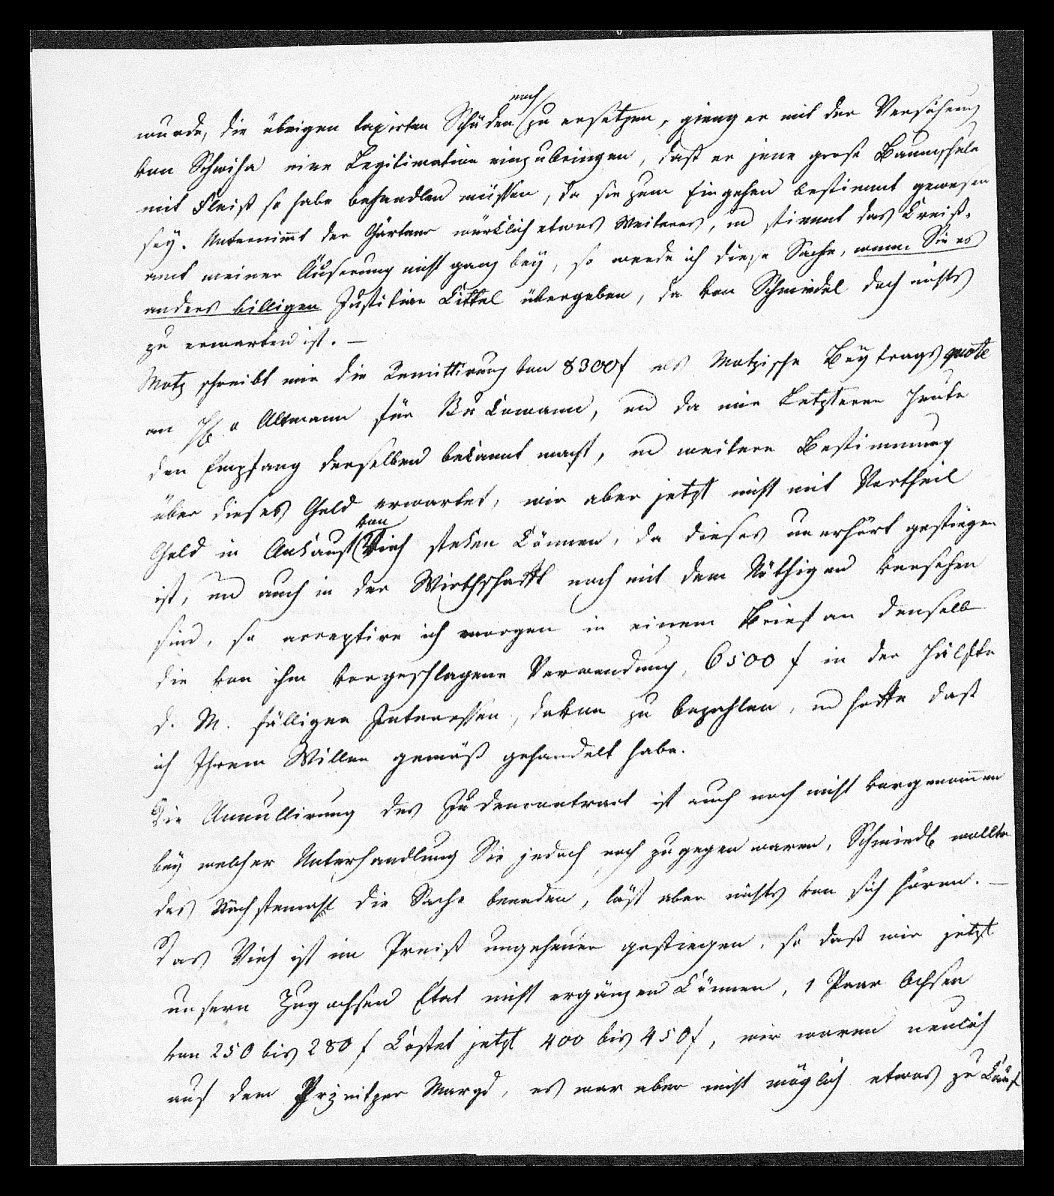 wurde, die übrigen taxirten Schäden noch zu ersetzen, gieng er mit der Versicherung
von Schwiha eine Legitimation einzubringen, daß er jene große Baumschule
mit Fleiß so habe behandlen müssen, da sie zum Eingehen bestimmt gewesen
sey. Unternimmt der Gärtner würklich etwas Weiteres, und stimmt das Creiß-
amt meiner Äußerung nicht ganz bey, so werde ich diese Sache, wenn Sie es
anders billigen Justitiar Littel übergeben, da von Schmiedel doch nichts
zu erwarten ist. —
Motz schreibt mir die Remittirung von 8300 f als Motzische Beytrags quote
an Altmann für Bukowann, und da mir Letzterer heute
den Empfang derselben bekannt macht, und weitere Bestimmung
über dieses Geld erwartet, wir aber jetzt nicht mit Vortheil
Geld in Ankauf von Vieh steken können, da dieses unerhört gestiegen
ist, und auch in der Wirthschaft noch mit dem Nöthigen versehen
sind, so acceptire ich morgen in einem Brief an denselben
die von ihm vorgeschlagene Verwendung, 6500 f in der Hälfte
d. M. fälligen Interessen, davon zu bezahlen, und hoffe daß
ich Ihrem Willen gemäß gehandelt habe.
Die Annullirung des Judencontract ist auch noch nicht vorgenommen
bey welcher Unterhandlung Sie jedoch noch zugegen waren, Schmiedl wollte
des Nächstemahl die Sache beenden, läßt aber nichts von sich hören. —
Das Vieh ist im Preiß ungeheuer gestiegen, so daß wir jetzt
unsern Zugochsen Etat nicht ergänzen können, 1 Paar Ochsen
von 250 bis 280 f kostet jetzt 400 bis 450 f, wir waren neulich
auf dem Margd, es war aber nicht möglich etwas zu kauf